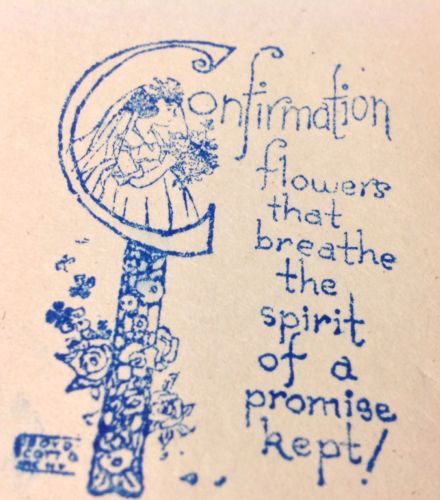 Confirmation
flowers
that
breathe
the
spirit
of a
promise
kept!